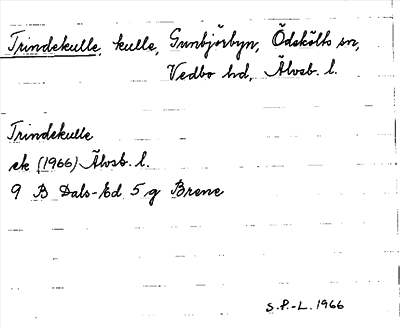 Trindekulle, kulle, Gunbjörbyn, Ödskölts sn,
Vedbo hd, Älvsb. l.
Trindekulle
ek (1966) Älvsb. l.
9 B Dals-Ed 5 g Brene
S.P.-L. 1966